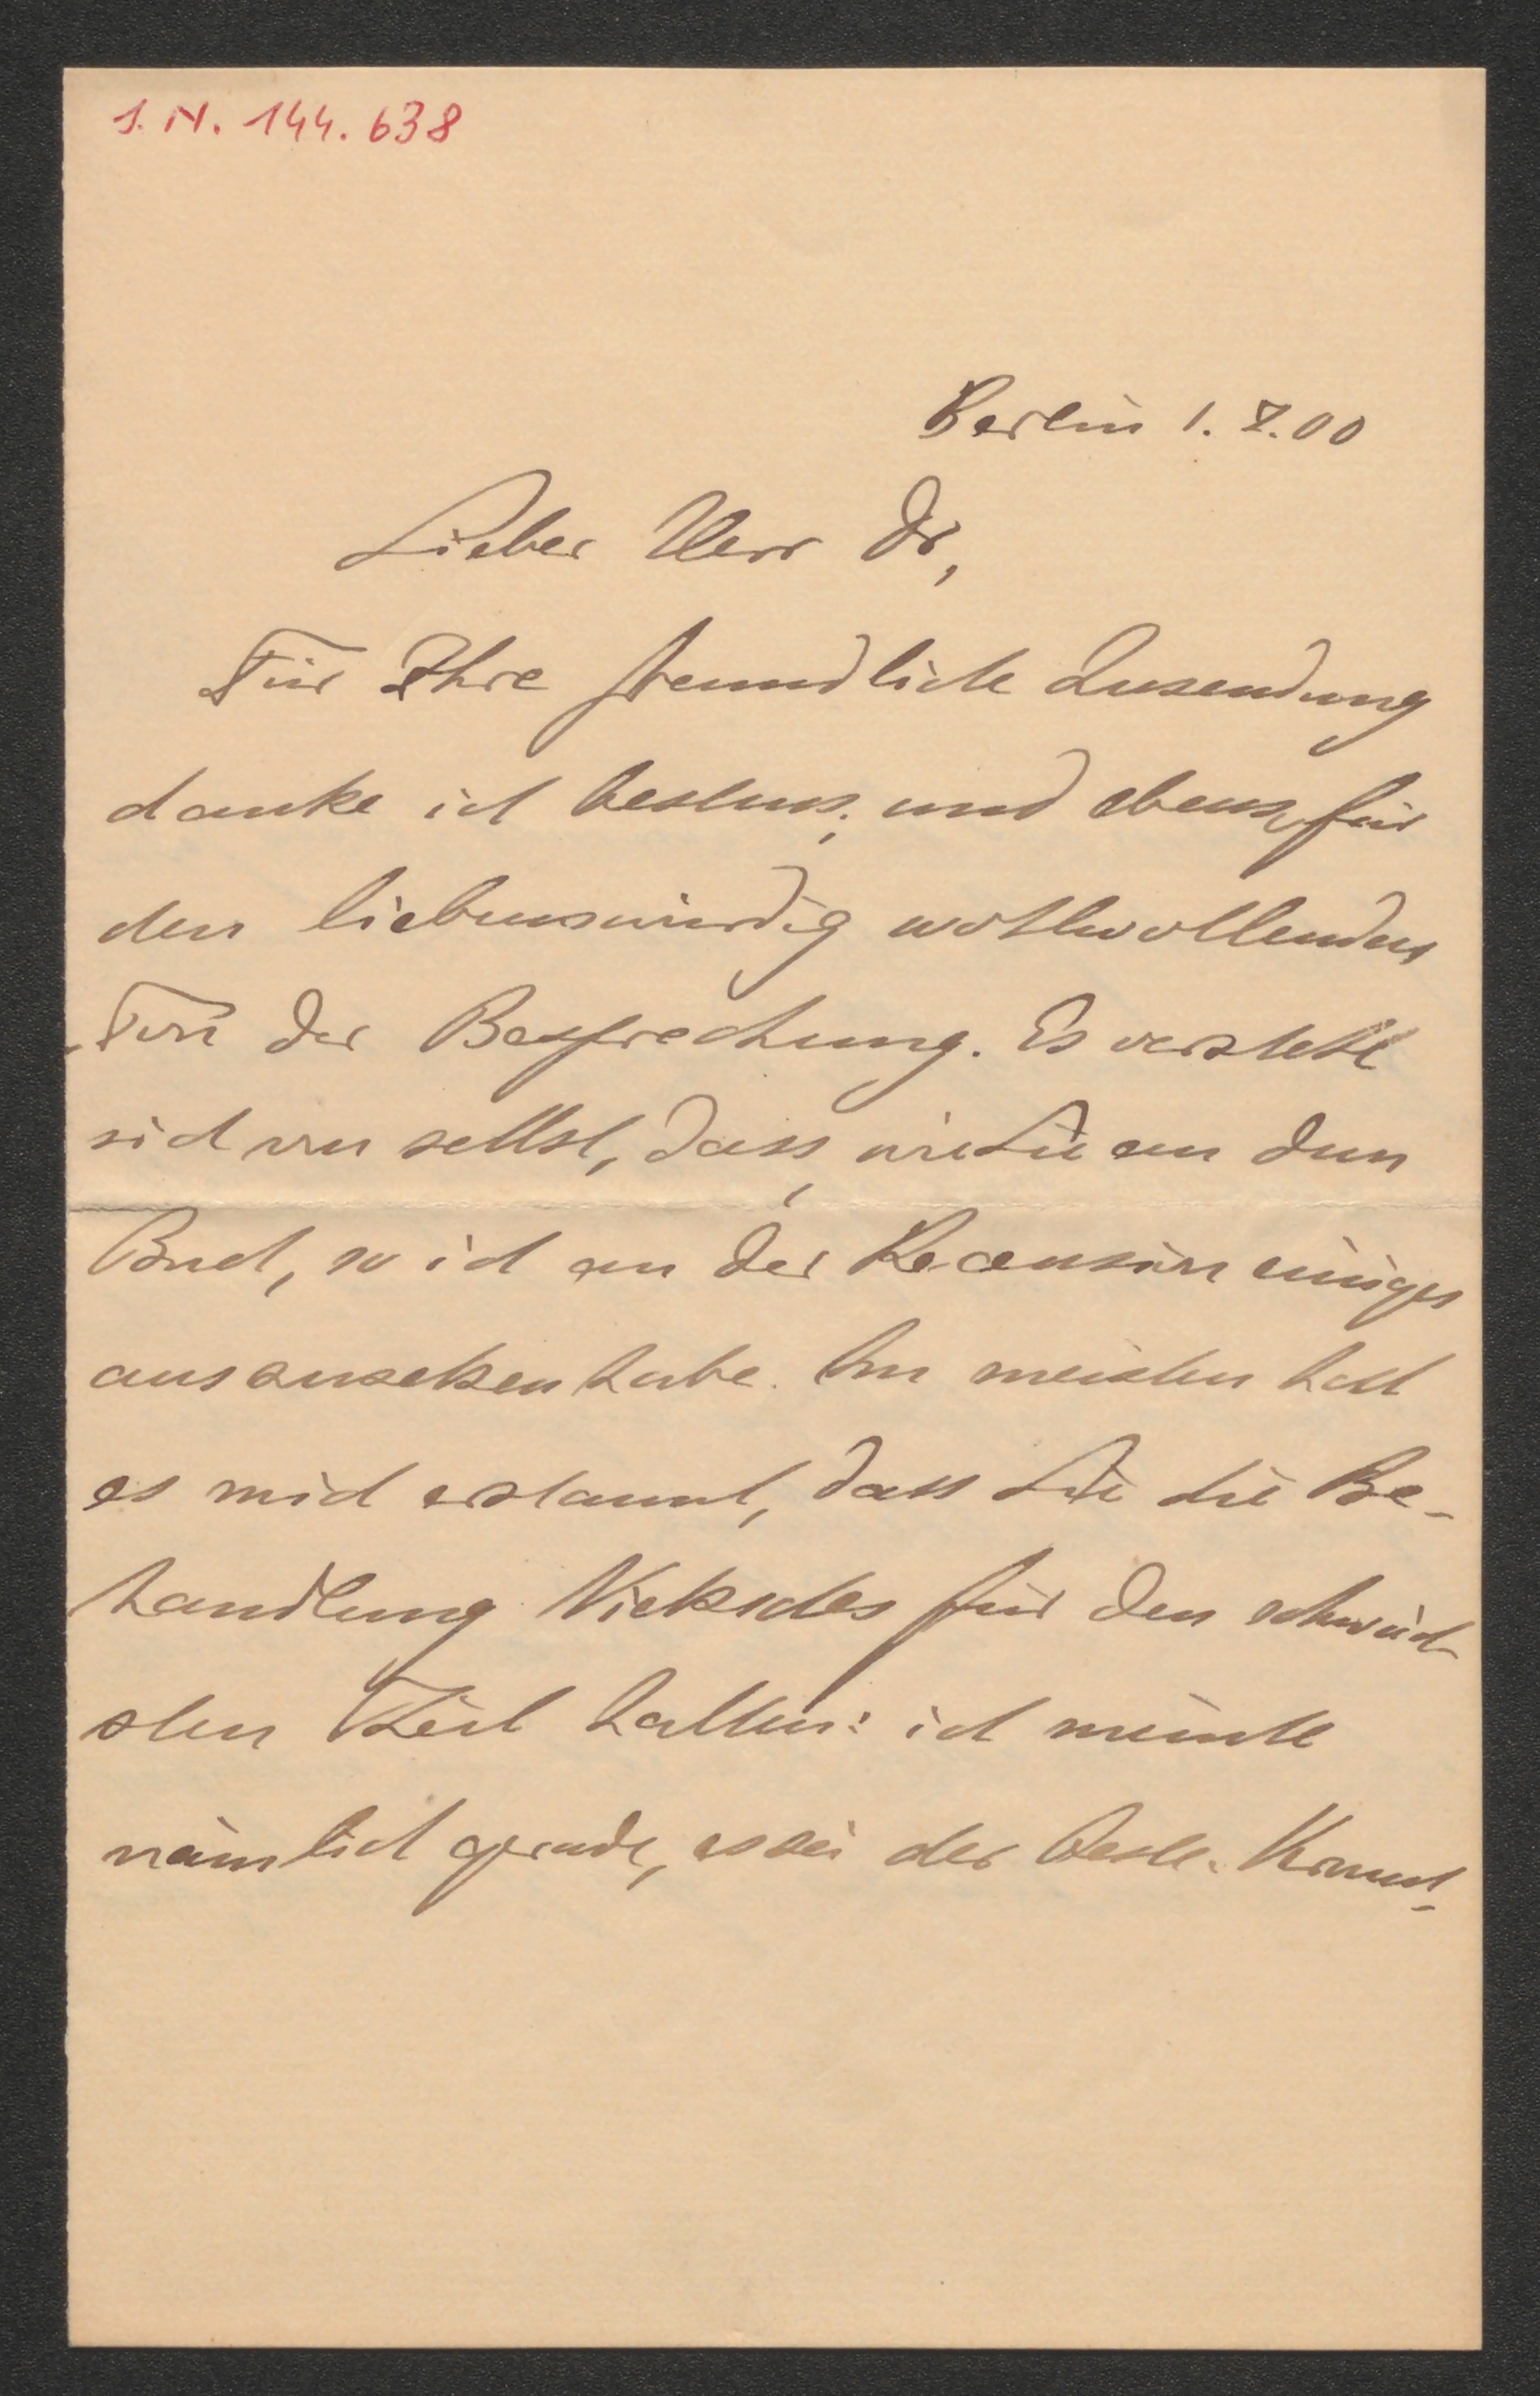 I. N. 144.638
Berlin 1. 7.00
Lieber Herr Dr,
Für Ihre freundliche Zusendung
danke ich bestens; und ebenso für
den liebenswürdig wohlwollenden
Ton der Besprechung. Es versteht
sich von selbst, dass, wie Sie an dem
Buch, so ich an der Recension einiges
auszusetzen habe. Am meisten hat
es mich erstaunt, dass Sie die Be-
handlung Nietzsches für den schwäch-
sten Theil halten: ich meinte
nämlich gerade, es sei der beste.